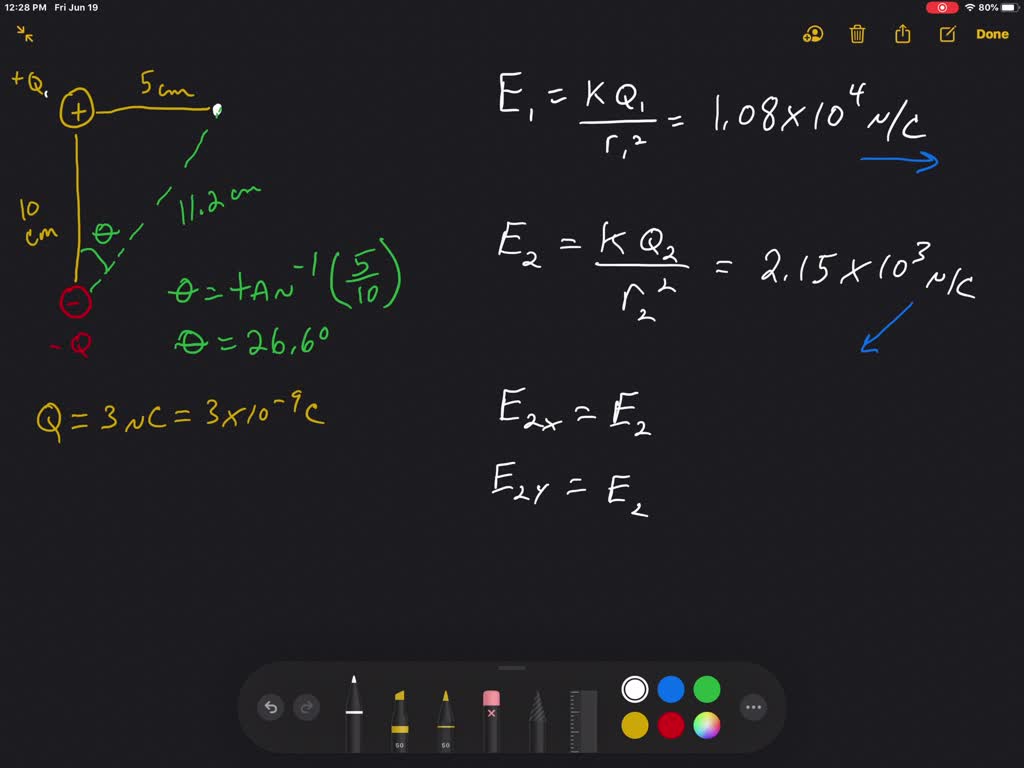 12:28 PM Fri Jun 19
80%
Done
+Q
5cm
+
10
cm
θ
11.2cm
−
-Q
θ = tAN⁻¹(5/10)
θ = 26.6°
Q = 3 nC = 3x10⁻⁹C
E₁ = KQ₁/r₁² = 1.08x10⁴ N/C
E₂ = KQ₂/r₂² = 2.15x10³ N/C
E₂ₓ = E₂
E₂ᵧ = E₂
50
50